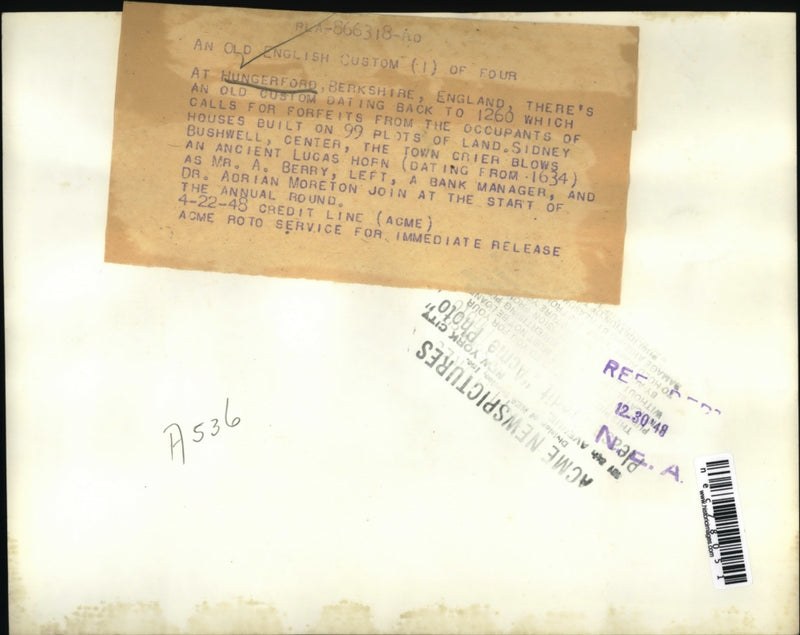 PLA-866318-AD
AN OLD ENGLISH CUSTOM (1) OF FOUR
AT HUNGERFORD, BERKSHIRE, ENGLAND, THERE'S
AN OLD CUSTOM DATING BACK TO 1260 WHICH
CALLS FOR FORFEITS FROM THE OCCUPANTS OF
HOUSES BUILT ON 99 PLOTS OF LAND. SIDNEY
BUSHWELL, CENTER, THE TOWN CRIER BLOWS
AN ANCIENT LUCAS HORN (DATING FROM 1634)
AS MR. A. BERRY, LEFT, A BANK MANAGER, AND
DR. ADRIAN MORETON JOIN AT THE START OF
THE ANNUAL ROUND.
4-22-48 CREDIT LINE (ACME)
ACME ROTO SERVICE FOR IMMEDIATE RELEASE
A536
ACME NEWSPICTURES
NEW YORK CITY
"Acme Photo"
Please
12-30-48
N.E.A.
nec18051
www.historicimages.com